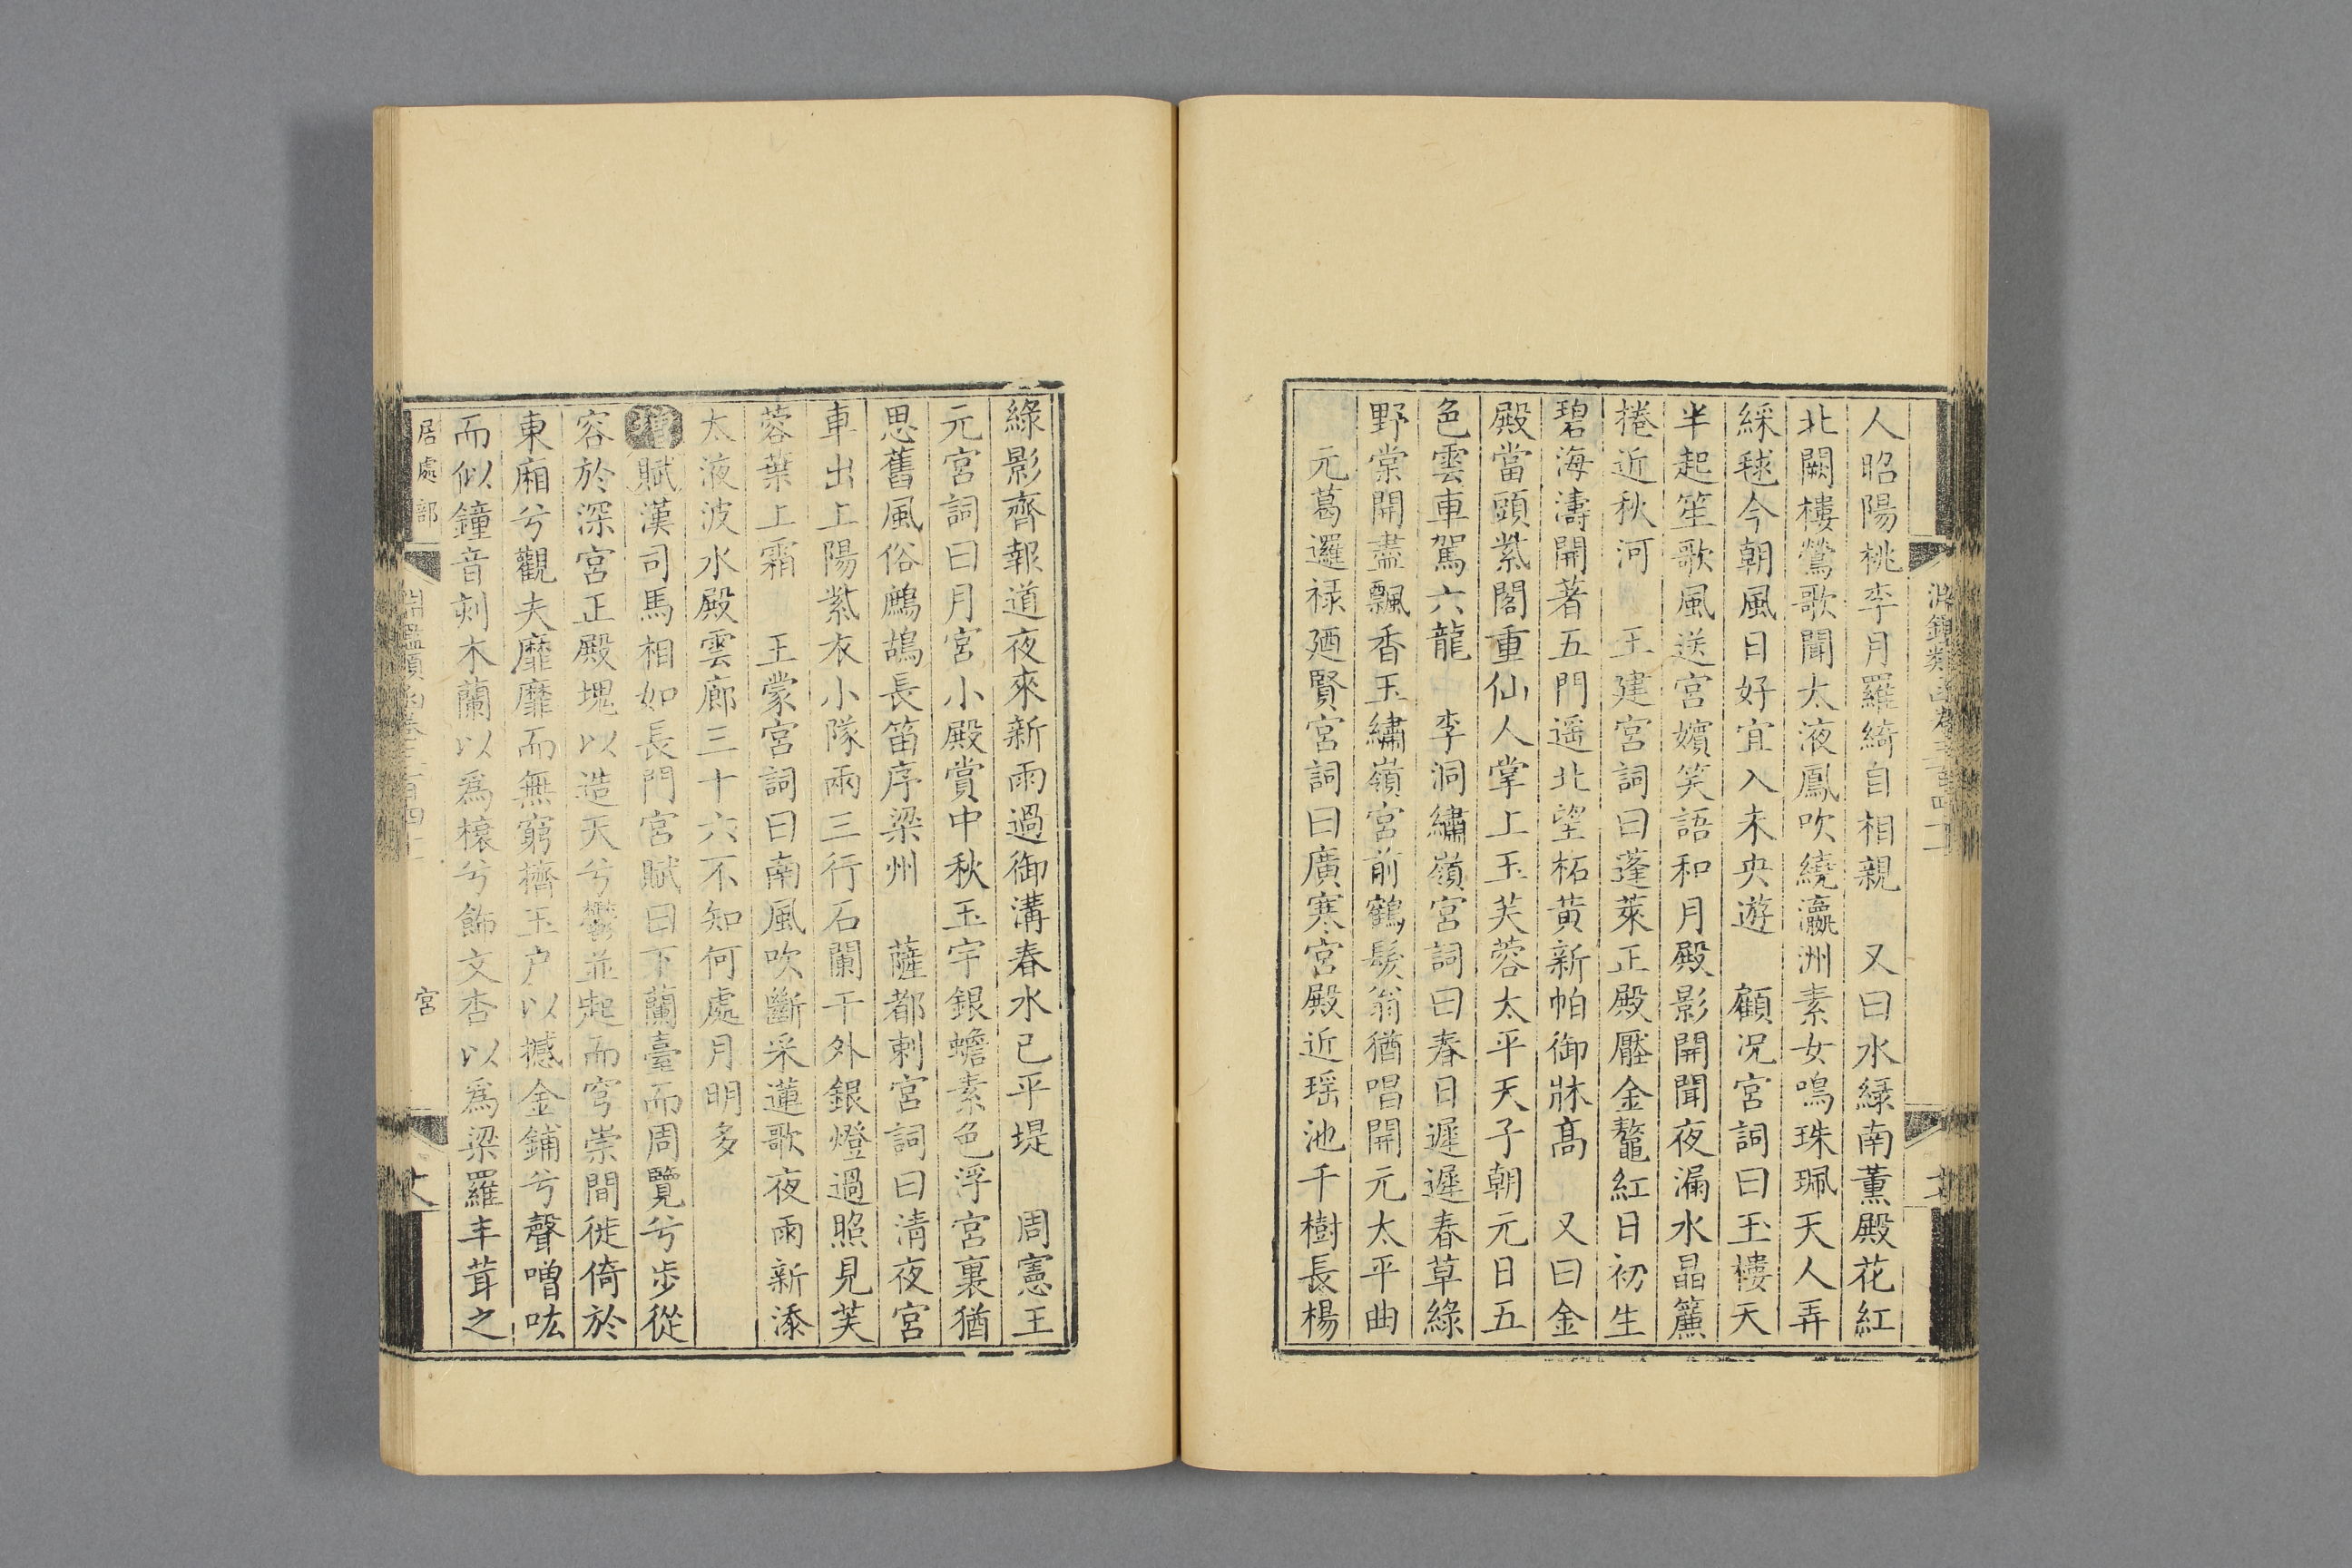 人昭陽桃李月羅綺自相親　又曰水綠南薰殿花紅
北闕樓鶯歌聞太液鳳吹繞瀛洲素女鳴珠珮天人弄
綵毬今朝風日好宜入未央遊　顧况宮詞曰玉樓天
半起笙歌風送宮嬪笑語和月殿影開聞夜漏水晶簾
捲近秋河　王建宮詞曰蓬萊正殿壓金鼇紅日初生
碧海濤開著五門遥北望柘黄新帕御牀髙　又曰金
殿當頭紫閣重仙人掌上玉芙蓉太平天子朝元日五
色雲車駕六龍　李洞繡嶺宮詞曰春日遲遲春草綠
野棠開盡飄香玉繡嶺宮前鶴髮翁猶唱開元太平曲
元葛邏禄廼賢宮詞曰廣寒宮殿近瑶池千樹長楊
綠影齊報道夜來新雨過御溝春水已平堤　周憲王
元宮詞曰月宮小殿賞中秋玉宇銀蟾素色浮宮裏猶
思舊風俗鷓鴣長笛序梁州　薩都剌宮詞曰清夜宮
車出上陽紫衣小隊兩三行石闌干外銀燈過照見芙
蓉葉上霜　王蒙宮詞曰南風吹斷采蓮歌夜雨新添
太液波水殿雲廊三十六不知何處月明多
增賦漢司馬相如長門宮賦曰下蘭臺而周覽兮步從
容於深宮正殿塊以造天兮鬱並起而穹崇間徙倚於
東廂兮觀夫靡靡而無窮擠玉户以撼金鋪兮聲噌吰
而似鐘音刻木蘭以爲榱兮飾文杏以爲梁羅丰茸之
居處部
淵鑑類函卷三百四十
宮